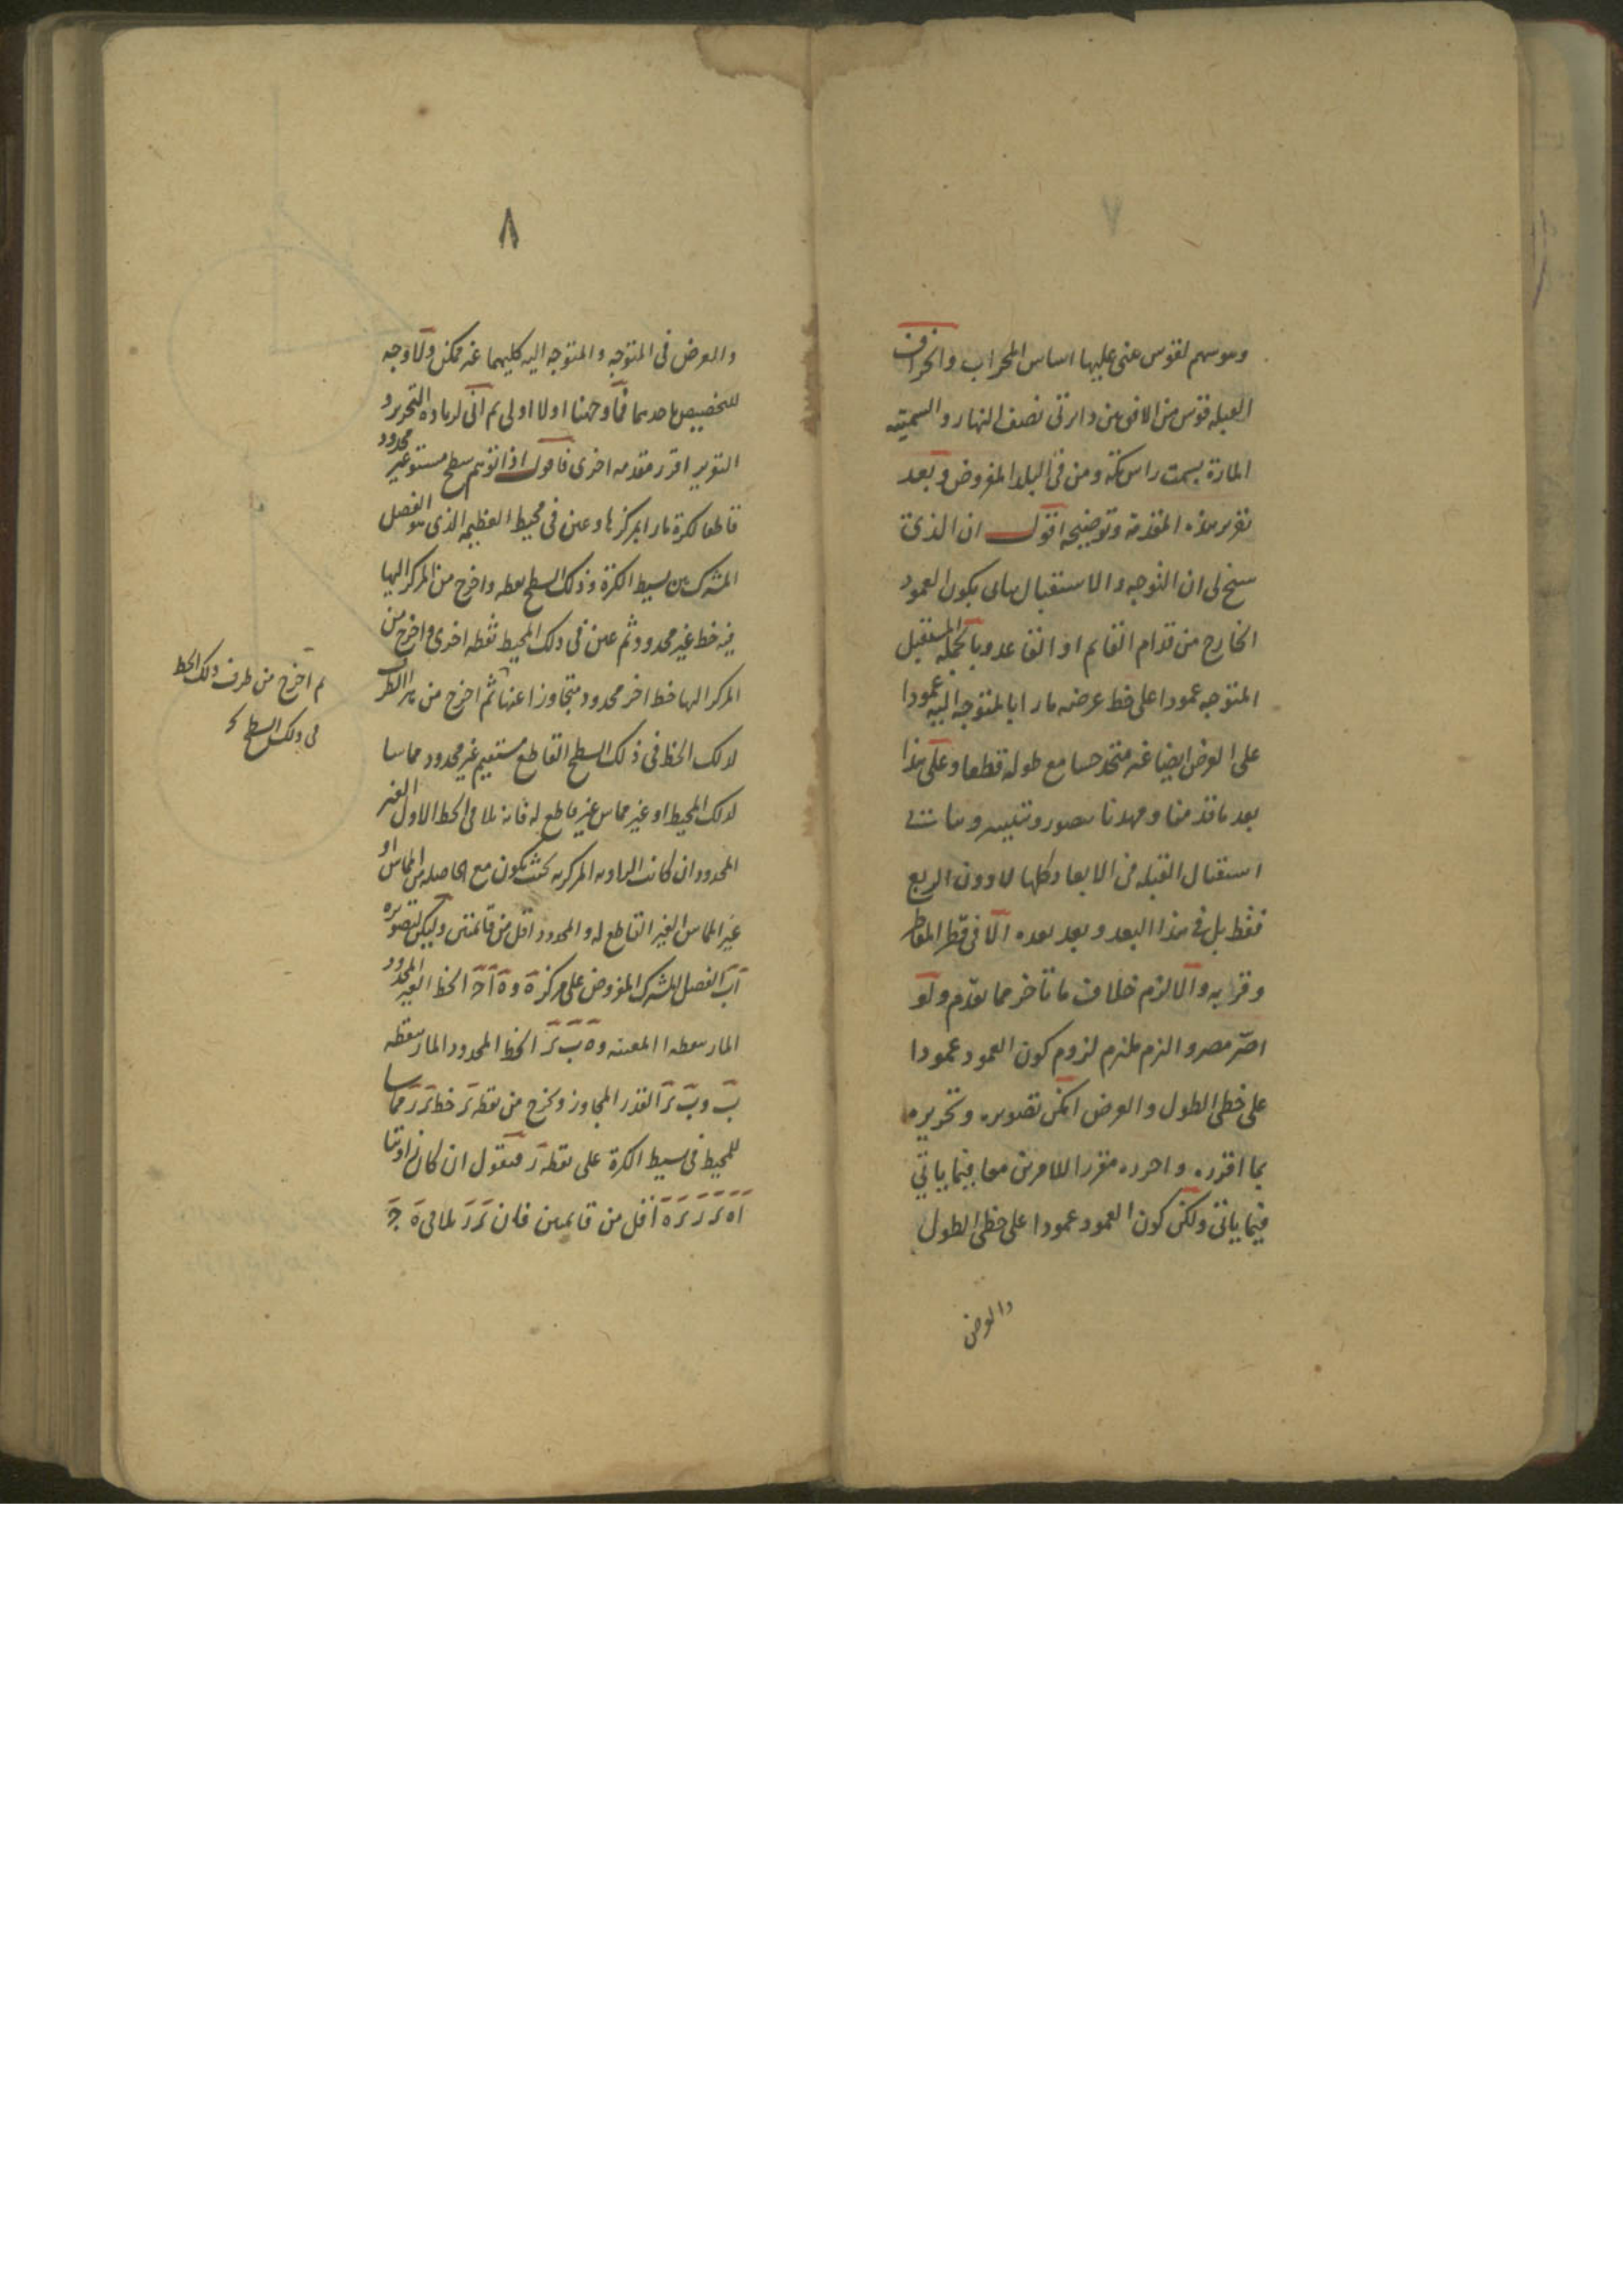 ٧
وهو سهم لقوس عنى عليها اساس المحراب وانحراف
القبله قوس من الافق بين دائرتى نصف النهار والسمتيه
المارة بسمت راس مكة ومن فى البلد المفروض وبعد
تقرير هذه المقدمة وتوضيحه اقول ان الذى
سنح لى ان التوجه والاستقبال بهالى يكون العمود
الخارج من قدام القايم او القاعد وبالجملة المستقبل
المتوجه عمودا على خط عرضه مارا بالمتوجه اليه عمودا
على العرض ايضا غير متحد حسا مع طوله قطعا وعلى هذا
بعد ما قدمنا ومهدنا يتصور ويتيسر ويتأتى
استقبال القبله من الابعاد كلها لا دون الربع
فقط بل فى هذا البعد وبعد بعده الا فى قطر المقاطر
وقرابه والا لزم خلاف ما تأخر مما تقدم ولو
اصر مصر والزم ملزم لزوم كون العمود عمودا
على خطى الطول والعرض امكن تصويره وتحريره
بما اقرره واحرره مقررا للامرين معا فيما ياتي
فيما ياتى ولكن كون العمود عمودا على خطى الطول
والعرض
٨
والعرض فى المتوجه والمتوجه اليه كليهما غير ممكن ولا وجه
للتخصيص باحدهما فما وجهنا اولا اولى ثم انى لزيادة التحرير و
التنوير اقرر مقدمه اخرى فاقول اذا توهم سطح مستو غير محدود
قاطعا لكرة مارا بمركزها وعين فى محيط العظيمه الذى هو الفصل
المشترك بين بسيط الكرة وذلك السطح نقطه واخرج من المركز اليها
فيه خط غير محدود ثم عين فى ذلك المحيط نقطه اخرى واخرج من
المركز اليها خط اخر محدود متجاوزا عنها ثم اخرج من هذا الطرف
لذلك الخط فى ذلك السطح القاطع مستقيم غير محدود مماسا
لذلك المحيط او غير مماس غير قاطع له فانه يلاقى الخط الاول الغير
المحدود ان كانت الزاويه المركزيه بحيث يكون مع الحاصله من المماس او
غير المماس الغير القاطع له والمحدود اقل من قائمتين وليكن لتصويره
اب الفصل المشترك المفروض على مركز ه و ه ا ج الخط الغير المحدود
المار بنقطه ا المعينه و ه ب ز الخط المحدود المار بنقطه
ب و ب ز القدر المجاوز ويخرج من نقطه ز خط ز ر مماسا
للمحيط فى بسيط الكرة على نقطه ر فنقول ان كان زاويتا
ا ه ز ر ز ه اقل من قائمتين فان ز ر يلاقى ه ج
ثم اخرج من طرف ذلك الخط
فى ذلك السطح